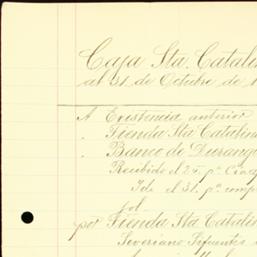 Caja Sta. Catalin
al 31. de Octubre de 1
A Existencia anterior
" Tienda Sta Catalina
" Banco de Durango
Recibido el 25. pª
Ide el 31. pª comp
sol
por Tienda Sta Catalin
Severiano Sifuentes